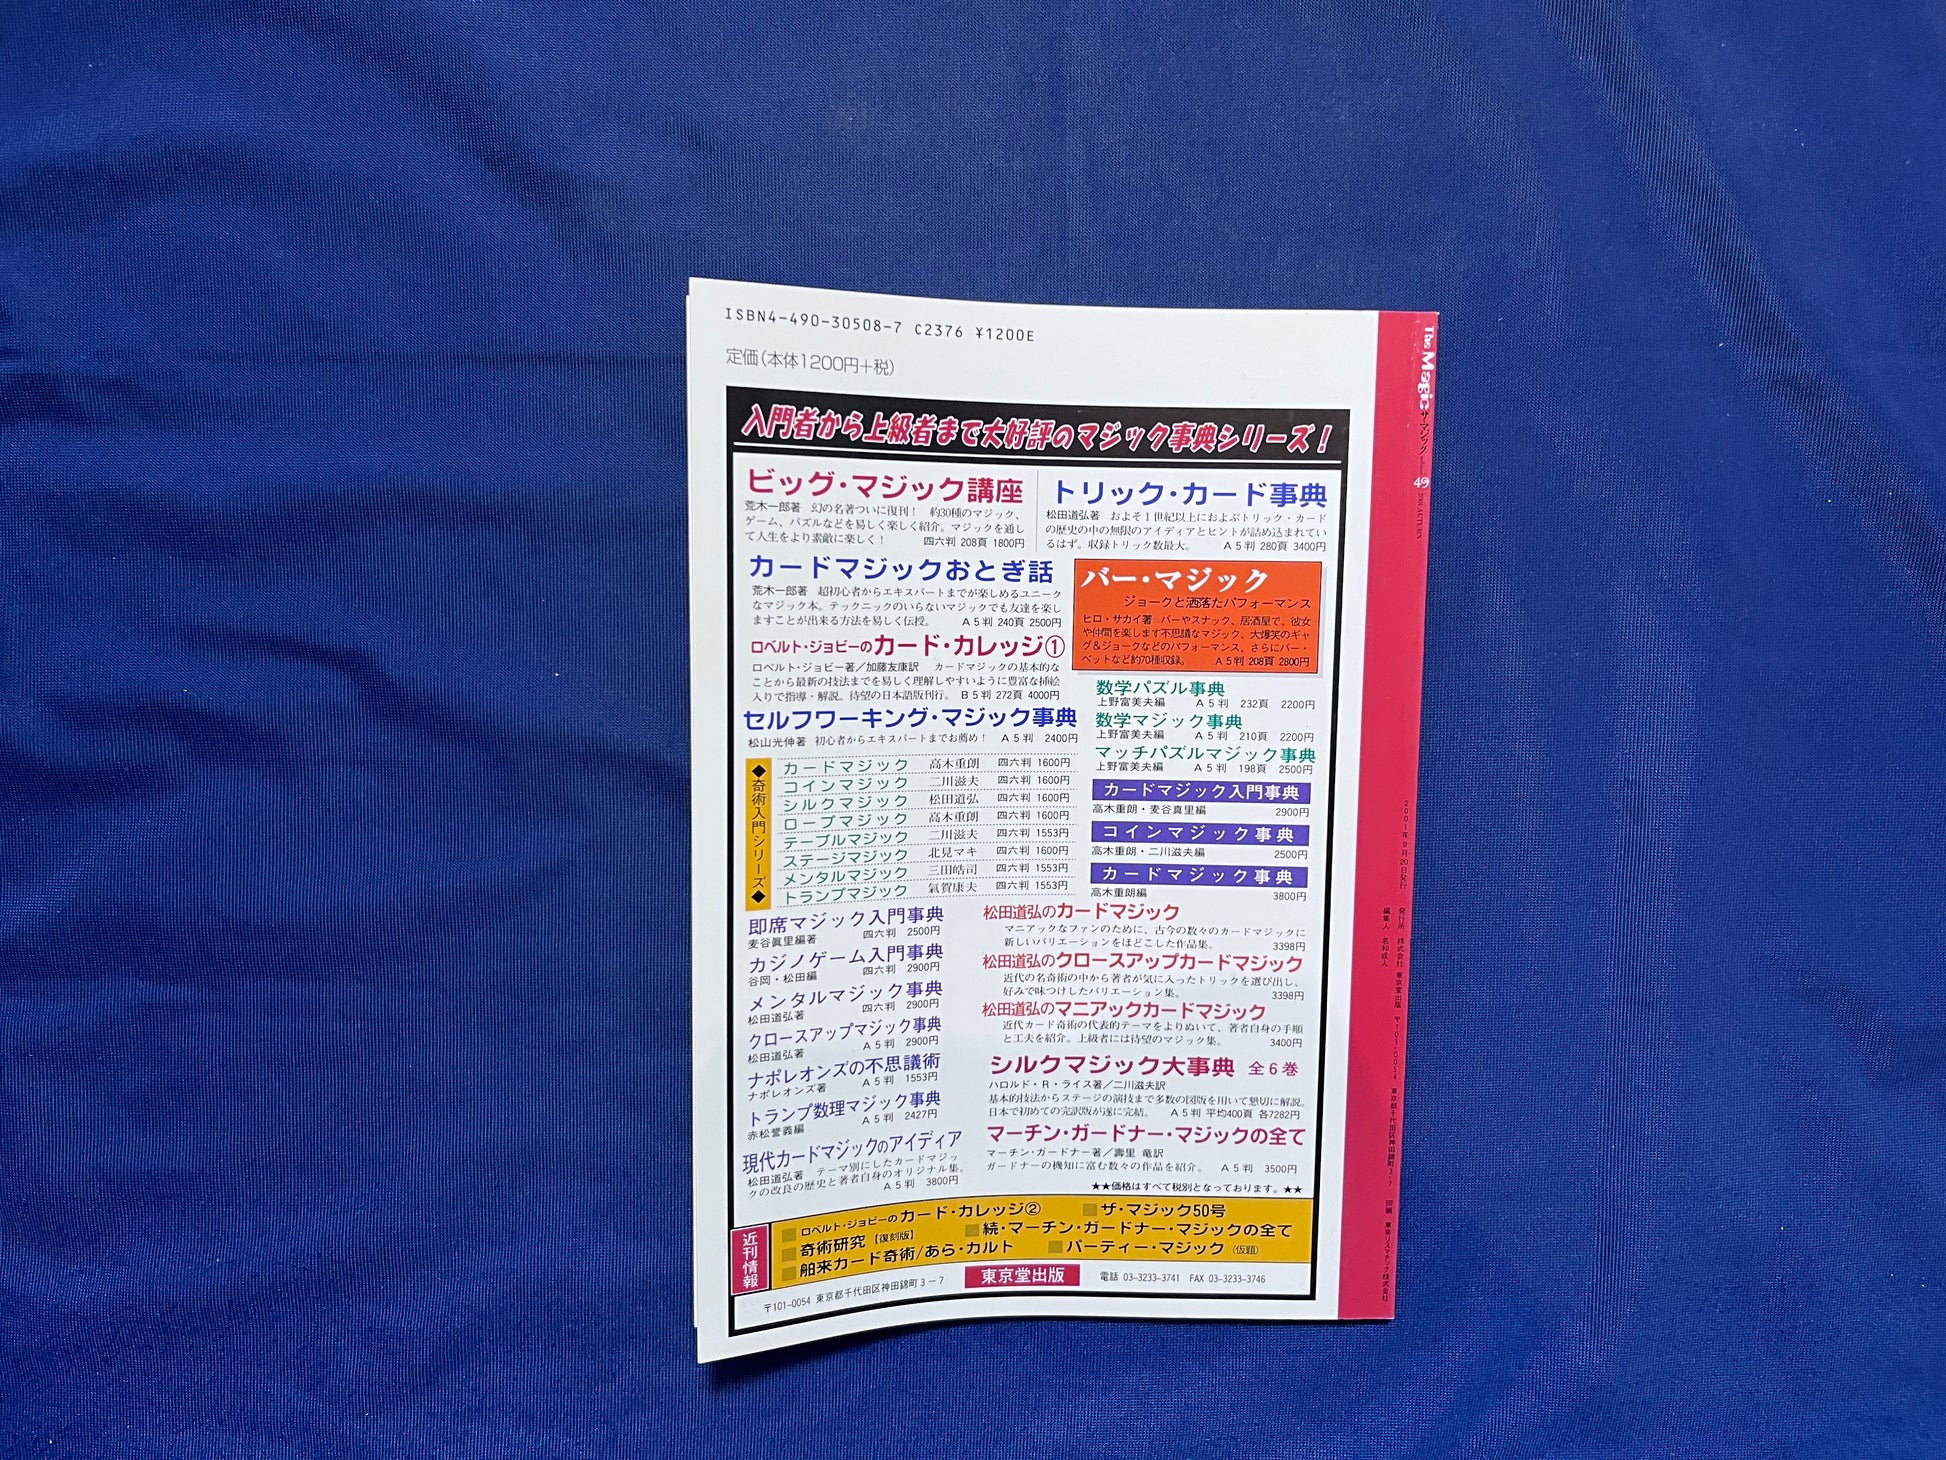 ISBN4-490-30508-7 C2376 ¥1200E
定価(本体1200円+税)
入門者から上級者まで大好評のマジック事典シリーズ!
ビッグ・マジック講座
荒木一郎著 幻の名著ついに復刊! 約30種のマジック、
ゲーム、パズルなどを易しく楽しく紹介。マジックを通し
て人生をより素敵に楽しく! 四六判 208頁 1800円
トリック・カード事典
松田道弘著 およそ1世紀以上におよぶトリック・カード
の歴史の中の無限のアイディアとヒントが詰め込まれてい
るはず。収録トリック数最大。 A5判 280頁 3400円
カードマジックおとぎ話
荒木一郎著 超初心者からエキスパートまでが楽しめるユニーク
なマジック本。テックニックのいらないマジックでも友達を楽し
ますことが出来る方法を易しく伝授。 A5判 240頁 2500円
バー・マジック
ジョークと洒落たパフォーマンス
ヒロ・サカイ著 バーやスナック、居酒屋で、彼女
や仲間を楽します不思議なマジック、大爆笑のギャ
グ&ジョークなどのパフォーマンス、さらにバー・
ベットなど約70種収録。 A5判 208頁 2800円
ロベルト・ジョビーのカード・カレッジ①
ロベルト・ジョビー著/加藤友康訳 カードマジックの基本的な
ことから最新の技法までを易しく理解しやすいように豊富な挿絵
入りで指導・解説。待望の日本語版刊行。 B5判 272頁 4000円
セルフワーキング・マジック事典
松山光伸著 初心者からエキスパートまでお薦め! A5判 2400円
数学パズル事典
上野富美夫編 A5判 232頁 2200円
数学マジック事典
上野富美夫編 A5判 210頁 2200円
マッチパズルマジック事典
上野富美夫編 A5判 198頁 2500円
◆奇術入門シリーズ◆
カードマジック 高木重朗 四六判 1600円
コインマジック 二川滋夫 四六判 1600円
シルクマジック 松田道弘 四六判 1600円
ロープマジック 高木重朗 四六判 1600円
テーブルマジック 二川滋夫 四六判 1553円
ステージマジック 北見マキ 四六判 1600円
メンタルマジック 三田皓司 四六判 1553円
トランプマジック 氣賀康夫 四六判 1553円
カードマジック入門事典
高木重朗・麦谷眞里編 2900円
コインマジック事典
高木重朗・二川滋夫編 2500円
カードマジック事典
高木重朗編 3800円
即席マジック入門事典
麦谷眞里編著 四六判 2500円
カジノゲーム入門事典
谷岡・松田編 四六判 2900円
メンタルマジック事典
松田道弘著 四六判 2900円
クロースアップマジック事典
松田道弘著 A5判 2900円
ナポレオンズの不思議術
ナポレオンズ著 A5判 1553円
トランプ数理マジック事典
赤松誉義編 A5判 2427円
現代カードマジックのアイディア
松田道弘著 テーマ別にしたカードマジッ
クの改良の歴史と著者自身のオリジナル集。
A5判 3800円
松田道弘のカードマジック
マニアックなファンのために、古今の数々のカードマジックに
新しいバリエーションをほどこした作品集。 3398円
松田道弘のクロースアップカードマジック
近代の名奇術の中から著者が気に入ったトリックを選び出し、
好みで味つけしたバリエーション集。 3398円
松田道弘のマニアックカードマジック
近代カード奇術の代表的テーマをよりぬいて、著者自身の手順
と工夫を紹介。上級者には待望のマジック集。 3400円
シルクマジック大事典 全6巻
ハロルド・R・ライス著/二川滋夫訳
基本的技法からステージの演技まで多数の図版を用いて懇切に解説。
日本で初めての完訳版が遂に完結。 A5判 平均400頁 各7282円
マーチン・ガードナー・マジックの全て
マーチン・ガードナー著/壽里 竜訳
ガードナーの機知に富む数々の作品を紹介。 A5判 3500円
★★価格はすべて税別となっております。★★
近刊情報
■ロベルト・ジョビーのカード・カレッジ② ■ザ・マジック50号
■奇術研究【復刻版】 ■続・マーチン・ガードナー・マジックの全て
■舶来カード奇術/あら・カルト ■パーティー・マジック(仮題)
〒101-0054 東京都千代田区神田錦町3-7 東京堂出版 電話 03-3233-3741 FAX 03-3233-3746
The Magic ザ・マジック 49 2001 AUTUMN
2001年9月20日発行 発行所 株式会社 東京堂出版 〒101-0054 東京都千代田区神田錦町3-7 印刷 東京リスマチック株式会社
編集人 名和成人